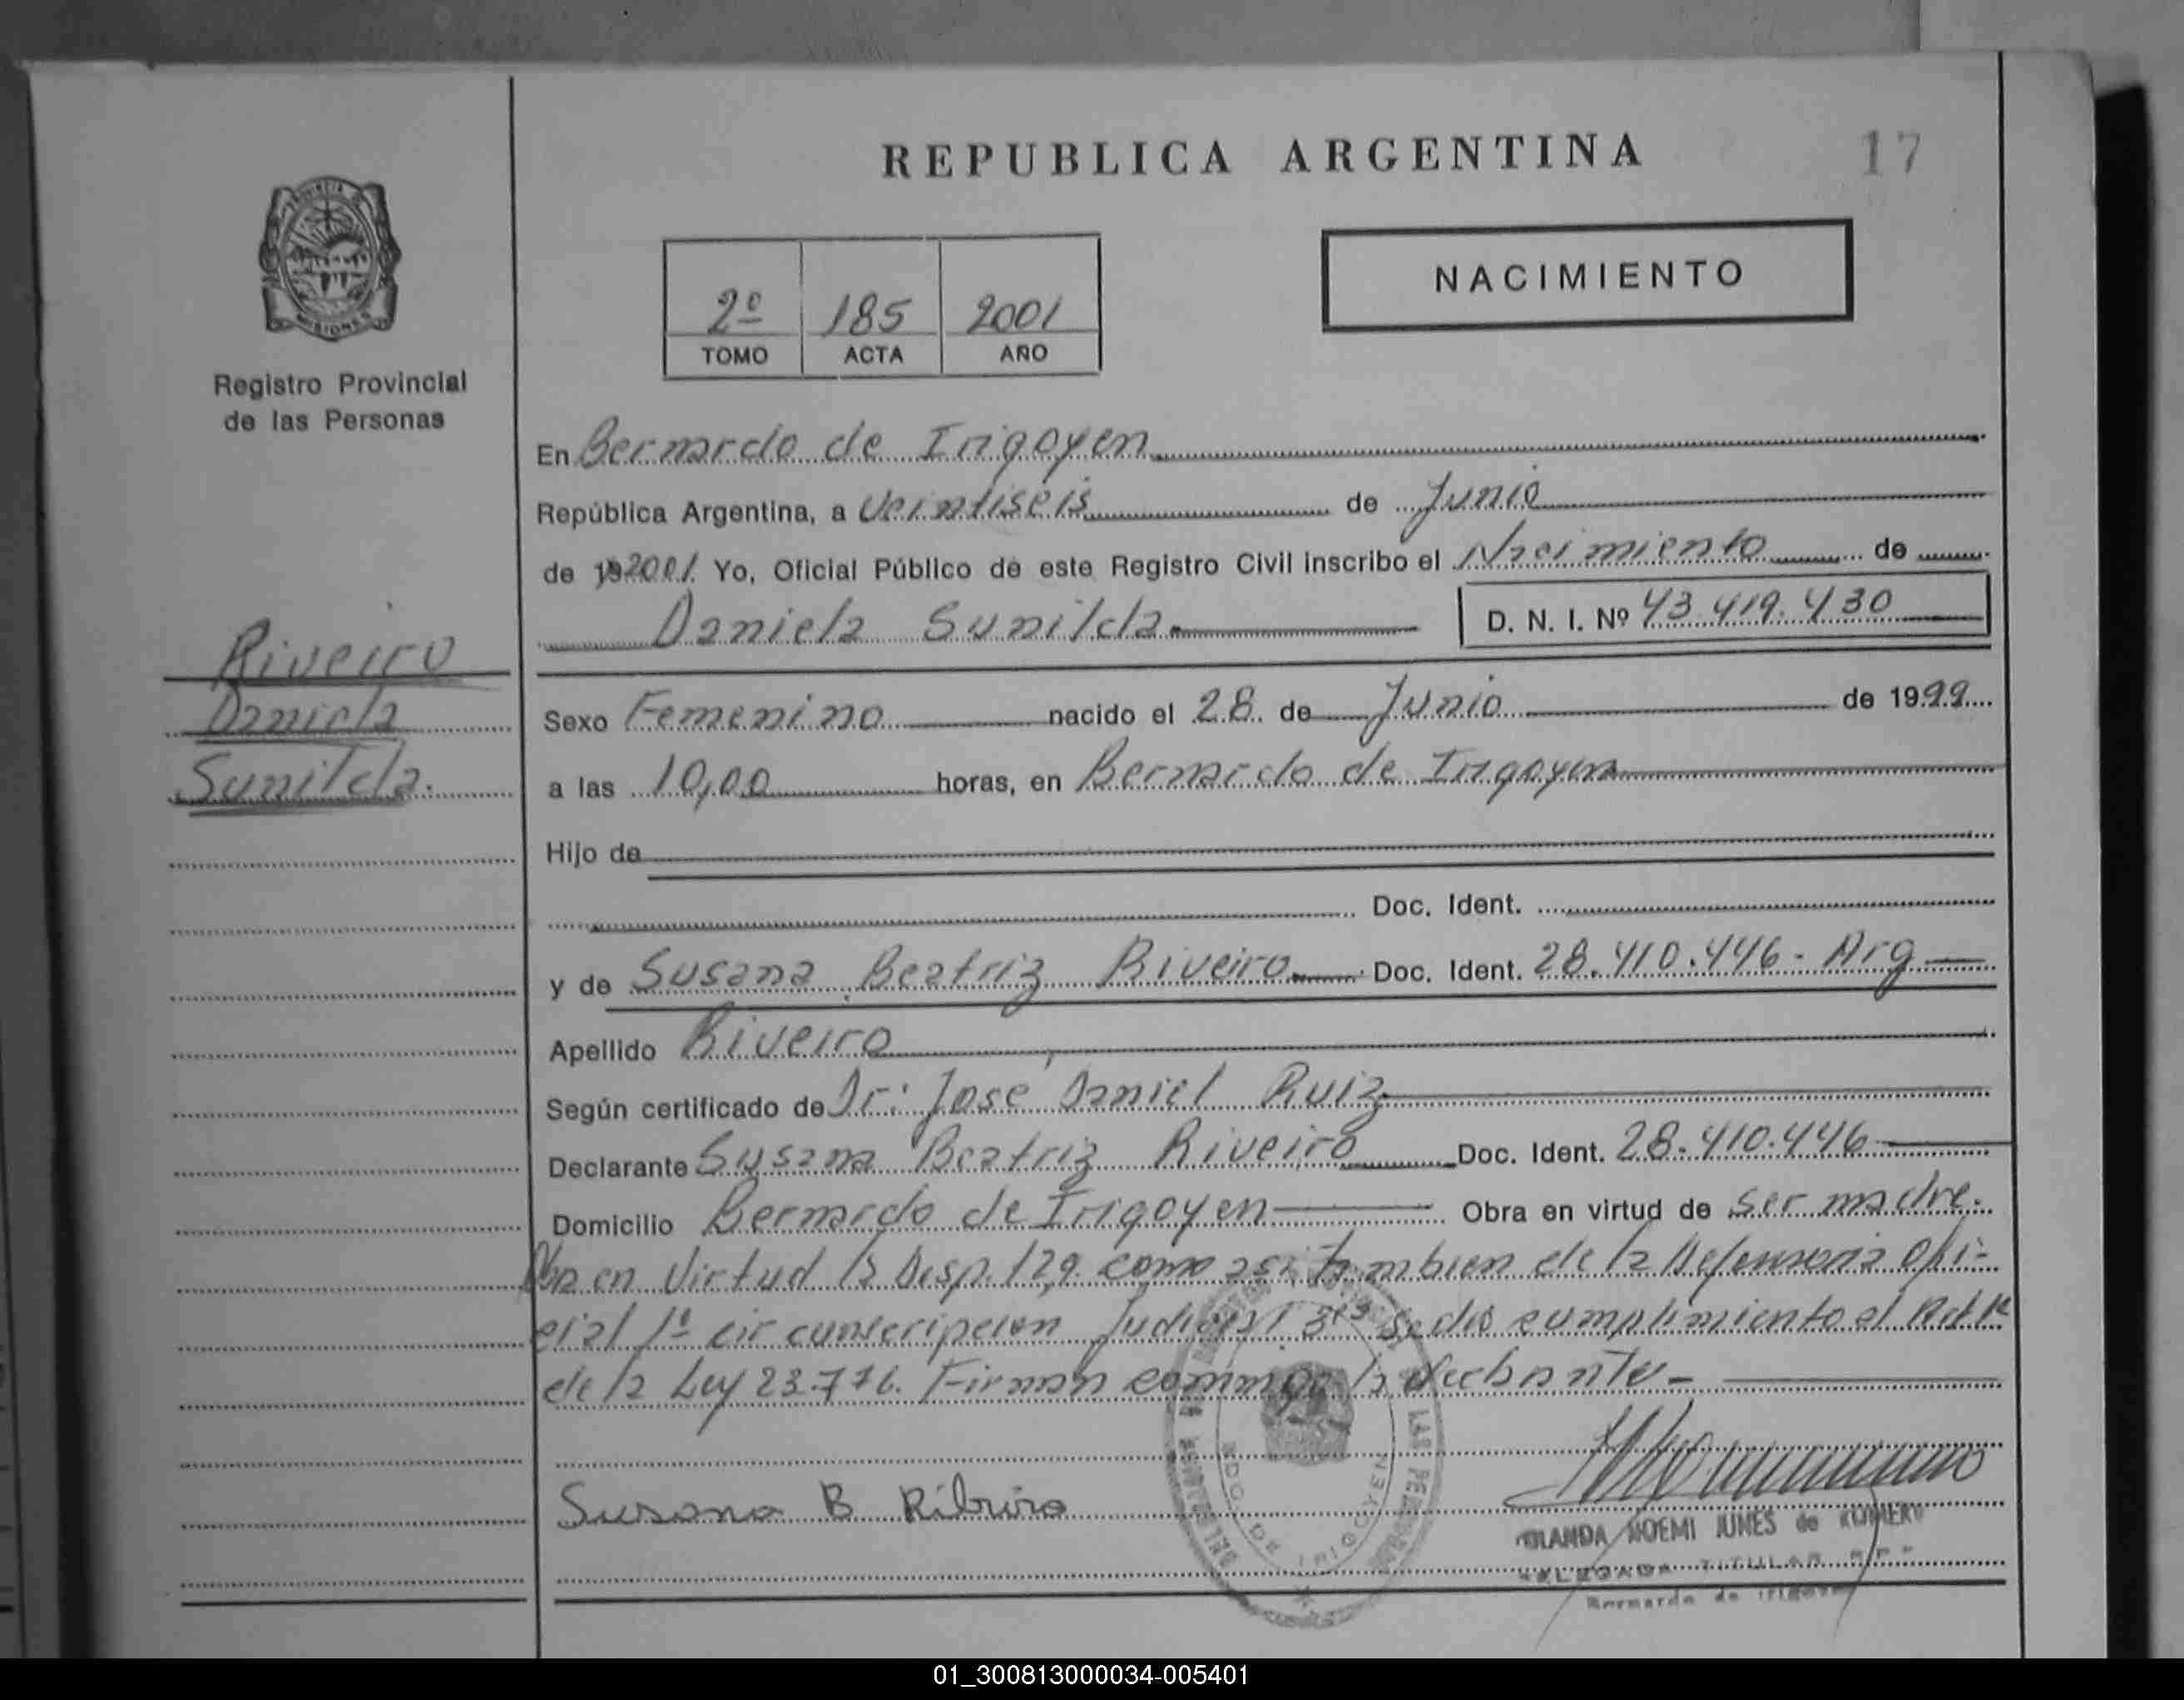 REPUBLICA ARGENTINA
17
NACIMIENTO
2º 185 2001
TOMO ACTA AÑO
MISIONES
Registro Provincial
de las Personas
Riveiro
Daniela
Sunilda.
En Bernardo de Irigoyen
República Argentina, a Veintiseis de Junio
de 192001. Yo, Oficial Público de este Registro Civil inscribo el Nacimiento de
Daniela Sunilda D. N. I. Nº 43.419.430
Sexo Femenino nacido el 28 de Junio de 1999
a las 10,00 horas, en Bernardo de Irigoyen
Hijo de
Doc. Ident.
y de Susana Beatriz Riveiro Doc. Ident. 28.410.446 - Arg
Apellido Riveiro
Según certificado de Dr: José Daniel Ruiz
Declarante Susana Beatriz Riveiro Doc. Ident. 28.410.446
Domicilio Bernardo de Irigoyen Obra en virtud de ser madre.
en Virtud la Disp. 129 como asi tambien de la Defensoria Ofi-
cial 1º circunscripcion Judicial se da cumplimiento al
de la Ley 23.776. Firman conmigo la
Susana B Ribeiro
NOEMI JUNES de ROMERO
TITULAR
Bernardo de Irigoyen
BDO. DE IRIGOYEN
01_300813000034-005401